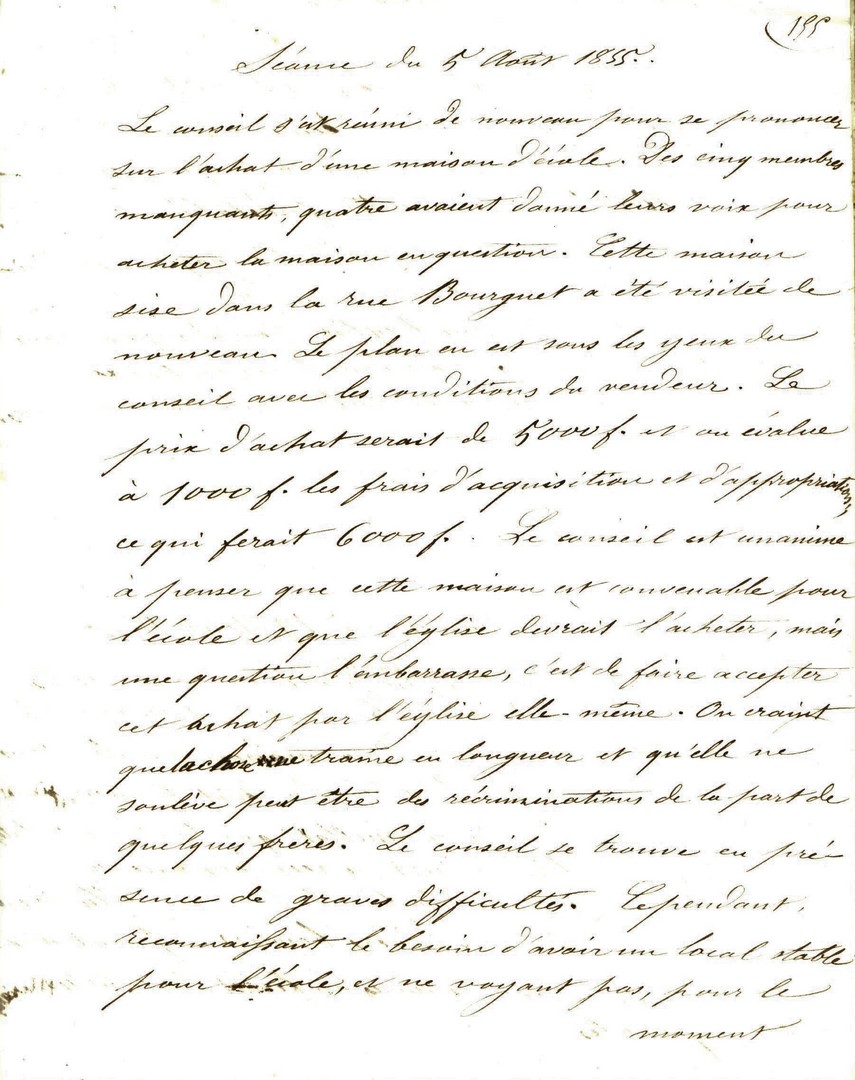 155
Séance du 5 Août 1855.
Le conseil s'est réuni de nouveau pour se prononcer
sur l'achat d'une maison d'école. Des cinq membres
manquants, quatre avaient donné leurs voix pour
acheter la maison en question. Cette maison
sise dans la rue Bourguet a été visitée de
nouveau. Le plan en est sous les yeux du
conseil avec les conditions du vendeur. Le
prix d'achat serait de 5000 f. et on évalue
à 1000 f. les frais d'acquisition et d'appropriation,
ce qui ferait 6000 f. Le conseil est unanime
à penser que cette maison est convenable pour
l'école et que l'église devrait l'acheter, mais
une question l'embarrasse, c'est de faire accepter
cet achat par l'église elle-même. On craint
que la chose ne traîne en longueur et qu'elle ne
soulève peut être des récriminations de la part de
quelques frères. Le conseil se trouve en pré-
sence de graves difficultés. Cependant,
reconnaissant le besoin d'avoir un local stable
pour l'école, et ne voyant pas, pour le
moment